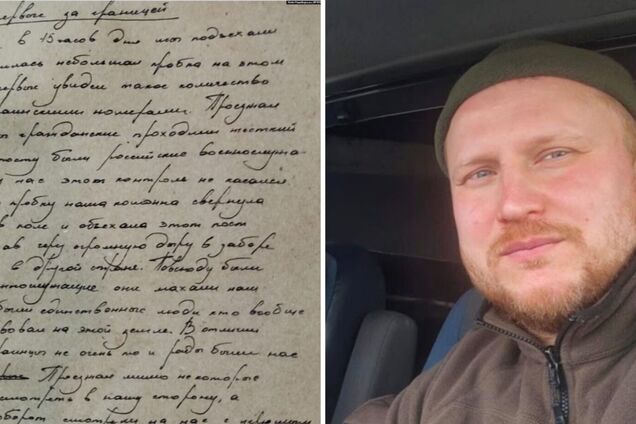 ервые за границей
в 15 часов дня мы подъехали
илась небольшая пробка на этом
первые увидел такое количество
аинскими номерами. Проезжая
гражданские проходили жесткий
посту были российские военнослужа
у нас этот контроль не касался
пробку наша колонна свернула
в поле и объехала этот пост
ав через огромную дыру в заборе
в другой стране. Повсюду были
еннослужащие они махали нам
были единственные люди кто вообще
вовал на этой земле. В отличии
раинцы не очень то и рады были нас
Проезжая мимо некоторые
смотреть в нашу сторону, а
оборот смотрели на нас с